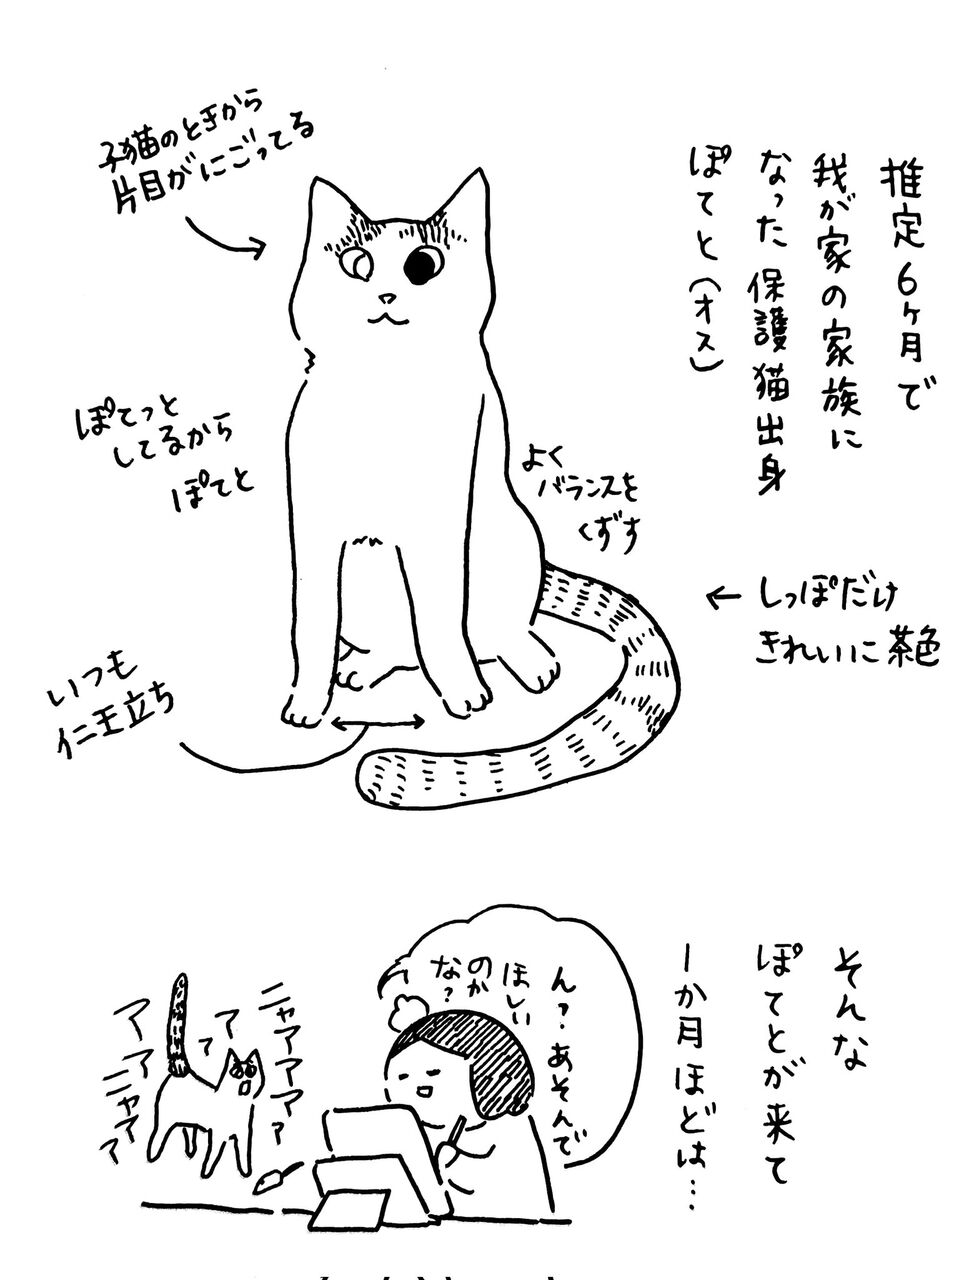 推定6ヶ月で
我が家の家族に
なった保護猫出身
ぽてと(オス)
子猫のときから
片目がにごってる
ぽてっと
してるから
ぽてと
よく
バランスを
くずす
←しっぽだけ
きれいに茶色
いつも
仁王立ち
そんな
ぽてとが来て
一か月ほどは…
ん?あそんで
ほしい
のか
な?
ニャアアアアア
アァ
アアニャアァ